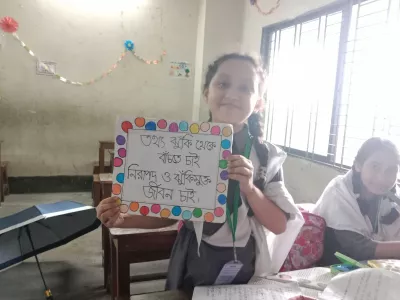 তথ্য ঝুঁকি থেকে
বাঁচতে চাই
নিরাপদ ও ঝুঁকিমুক্ত
জীবন চাই.